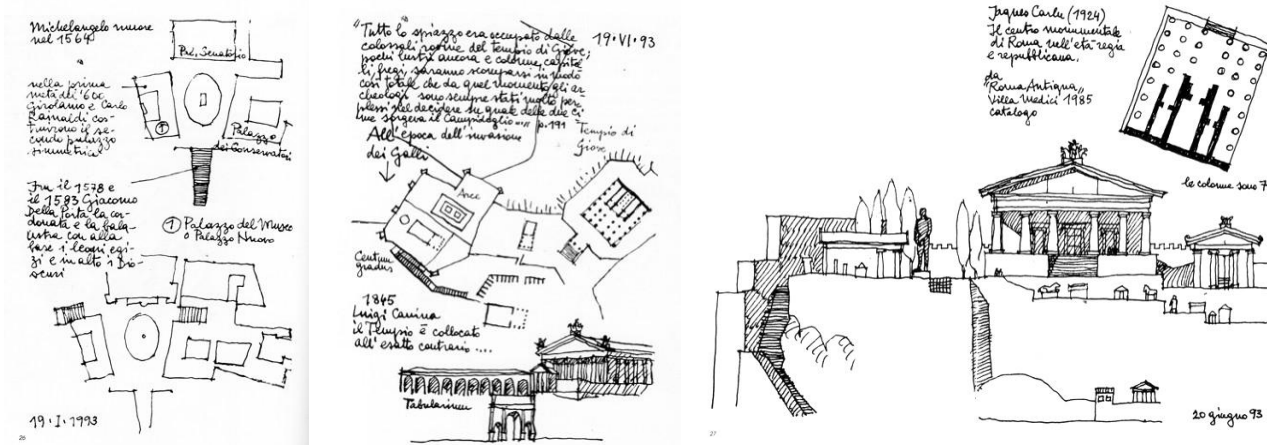 Michelangelo muore
nel 1564
Pal. Senatorio
nella prima
metà del '600
Girolamo e Carlo
Rainaldi cos-
truirono il se-
condo palazzo
simmetrico
①
Palazzo
dei Conservatori
Fra il 1578 e
il 1583 Giacomo
Della Porta la cor-
donata e la bala-
ustra con alla
base i leoni egi-
zi e in alto i Dio-
scuri
① Palazzo del Museo
o Palazzo Nuovo
19·I·1993
26
"Tutto lo spiazzo era occupato dalle
colossali rovine del tempio di Giove;
pochi lustri ancora e colonne, capitel
li, fregi, saranno scomparsi in modo
così totale che da quel momento gli ar
cheologi sono sempre stati molto per
plessi nel decidere su quale delle due ci
me sorgeva il Campidoglio ...." p. 191
19·VI·93
All'epoca dell'invasione
dei Galli
Tempio di
Giove
Arce
Centum
gradus
1845
Luigi Canina
il Tempio è collocato
all'esatto contrario ....
Tabularium
Jaques Carlu (1924)
Il centro monumentale
di Roma nell'età regia
e repubblicana.
da
"Roma Antiqua"
Villa Medici 1985
catalogo
le colonne sono 7
20 giugno 93
27